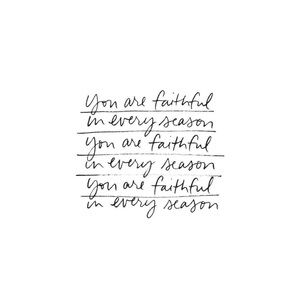 you are faithful
in every season
you are faithful
in every season
you are faithful
in every season